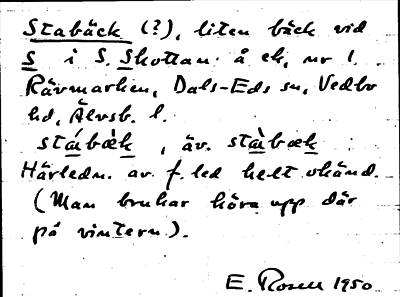 Stabäck (?), liten bäck vid
S i S. Skottan å ek, nr 1.
Rävmarken, Dals-Eds sn, Vedbo
hd, Älvsb. l.
stábæ̀k, äv. stàbæk
Härledn. av f. led helt okänd.
(Man brukar köra upp där
på vintern).
E. Rosell 1950